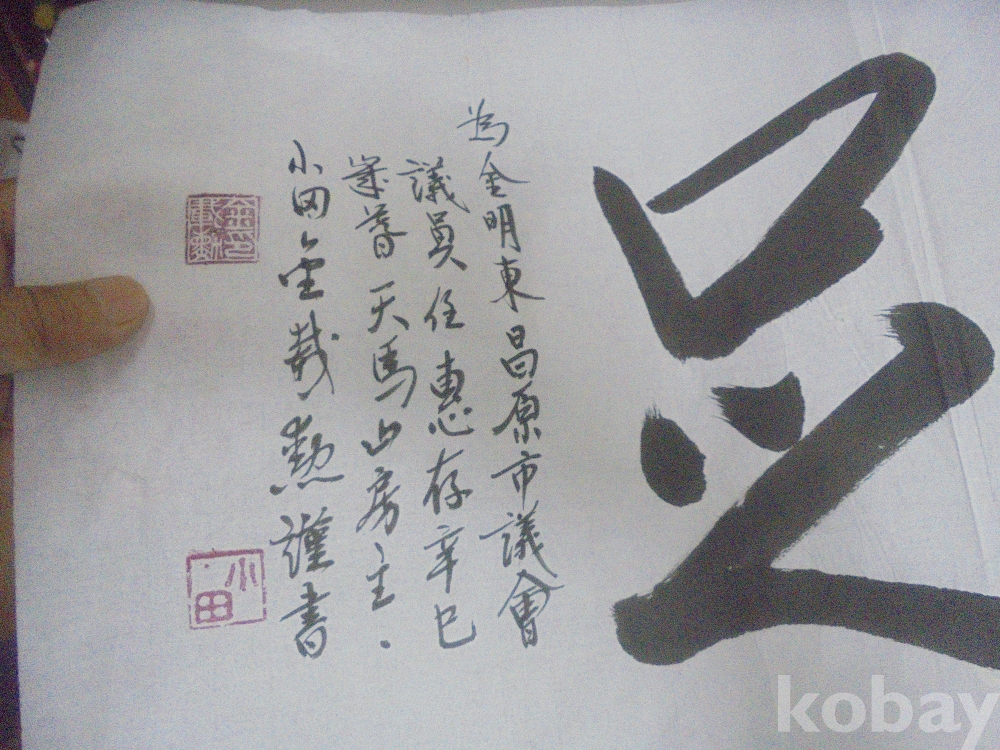 為金明東昌原市議會
議員任惠存辛巳
歲暮天馬山房主
小田金載勲謹書
小田
kobay